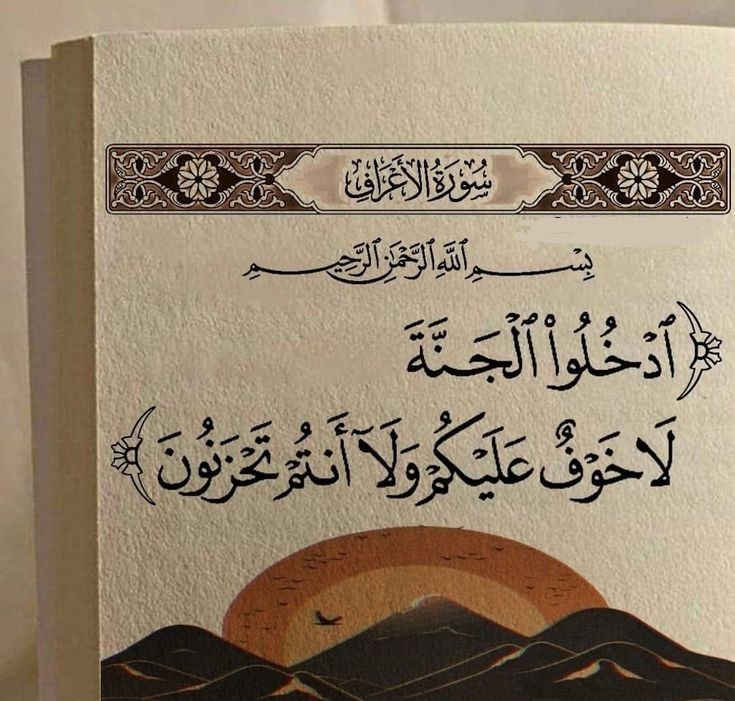 سُورَةُ الْأَعْرَافِ
بِسْمِ ٱللَّهِ ٱلرَّحْمَٰنِ ٱلرَّحِيمِ
﴿ ٱدْخُلُوا۟ ٱلْجَنَّةَ
لَا خَوْفٌ عَلَيْكُمْ وَلَآ أَنتُمْ تَحْزَنُونَ ﴾